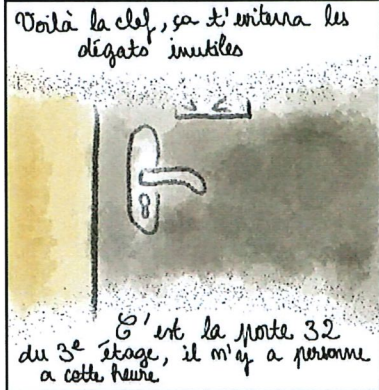 Voilà la clef, ça t'évitera les
dégats inutiles
C'est la porte 32
du 3e étage, il n'y a personne
a cette heure